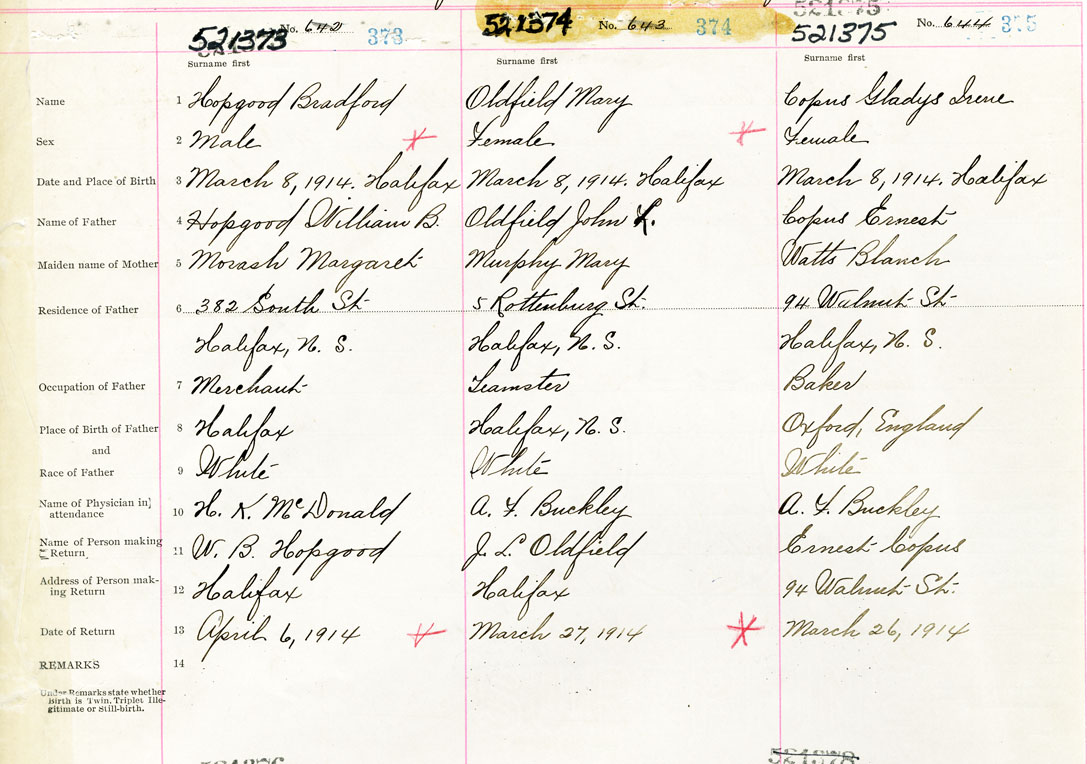 521375
No. 642 373 No. 643 374 No. 644 375
521373 521374 521375
Surname first Surname first Surname first
Name 1 Hopgood Bradford Oldfield Mary Copus Gladys Irene
Sex 2 Male Female Female
Date and Place of Birth 3 March 8, 1914. Halifax March 8, 1914. Halifax March 8, 1914. Halifax
Name of Father 4 Hopgood William B. Oldfield John L. Copus Ernest
Maiden name of Mother 5 Morash Margaret Murphy Mary Watts Blanch
Residence of Father 6 382 South St 5 Rottenburg St. 94 Walnut St
Halifax, N. S. Halifax, N. S. Halifax, N. S.
Occupation of Father 7 Merchant Teamster Baker
Place of Birth of Father 8 Halifax Halifax, N. S. Oxford, England
and
Race of Father 9 White White White
Name of Physician in attendance 10 H. K. McDonald A. F. Buckley A. F. Buckley
Name of Person making Return 11 W. B. Hopgood J. L. Oldfield Ernest Copus
Address of Person mak-
ing Return 12 Halifax Halifax 94 Walnut St.
Date of Return 13 April 6, 1914 March 27, 1914 March 26, 1914
REMARKS 14
Under Remarks state whether
Birth is Twin, Triplet Ille-
gitimate or Still-birth.